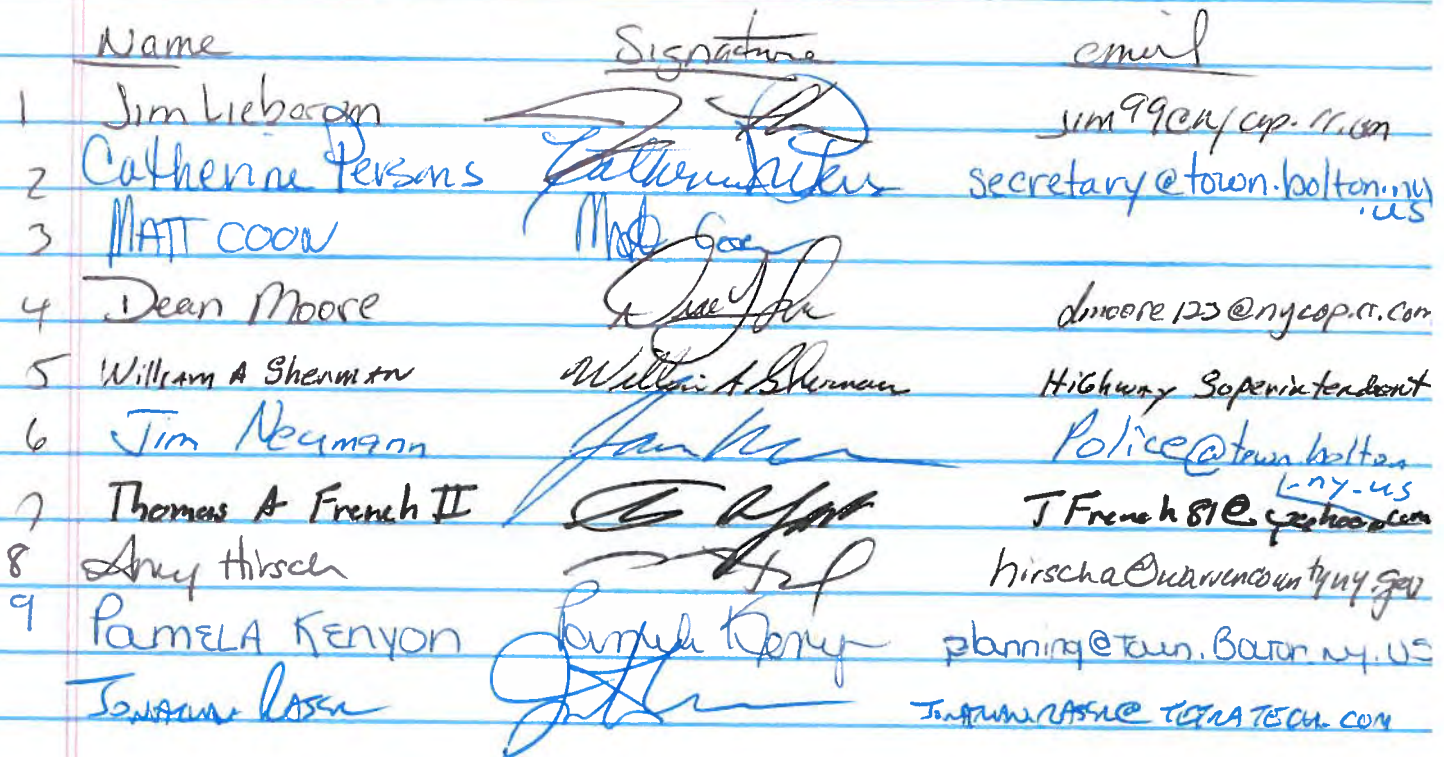 Name Signature email
1 Jim Lieberman jim99@nycap.rr.com
2 Catherine Persons secretary@town.bolton.ny
.us
3 MATT COON Matt Coon
4 Dean Moore dmoore123@nycap.rr.com
5 William A Sherman William A Sherman Highway Soperintendent
6 Jim Neumann Police@town.bolton
.ny.us
7 Thomas A French II TFrench81@yahoo.com
8 Amy Hirsch hirscha@warrencountyny.gov
9 PAMELA KENYON Pamela Kenyon planning@Town.Bolton.ny.US
@TETRATECH.COM